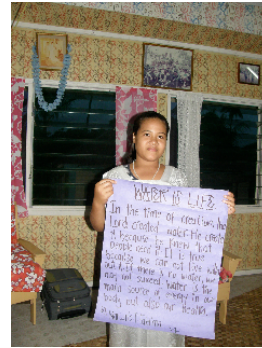 WATER IS LIFE.
In the time of creation, the
Lord created water. He create
it because he knew that
people need it. It is true
because we can not live without
out it. If there is no water, we
may not survived. Water is the
main source of energy in our
body and also our health.